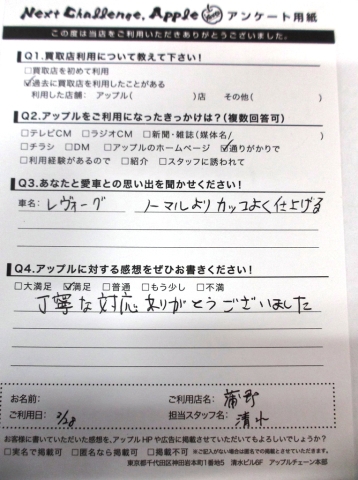 Next Challenge, Apple アンケート用紙
この度は当店をご利用いただきありがとうございました。
Q1.買取店利用について教えて下さい!
□買取店を初めて利用
☑過去に買取店を利用したことがある
利用した店舗： アップル( )店 その他( )
Q2.アップルをご利用になったきっかけは?(複数回答可)
□テレビCM □ラジオCM □新聞・雑誌(媒体名/ )
□チラシ □DM □アップルのホームページ ☑通りがかりで
□利用経験があるので □紹介 □スタッフに誘われて
Q3.あなたと愛車との思い出を聞かせください!
車名： レヴォーグ ノーマルよりカッコよく仕上げる
Q4.アップルに対する感想をぜひお書きください!
□大満足 ☑満足 □普通 □もう少し □不満
丁寧な対応ありがとうございました
お名前:
ご利用店名: 蒲野
ご利用日: 2/28
担当スタッフ名: 清水
お客様に書いていただいた感想を、アップルHPや広告に掲載させていただいてもよろしいでしょうか?
□実名で掲載可 □匿名なら掲載可 □掲載不可 ※ご記入がない場合は匿名での掲載とさせていただきます。
東京都千代田区神田岩本町1番地5 清水ビル6F アップルチェーン本部